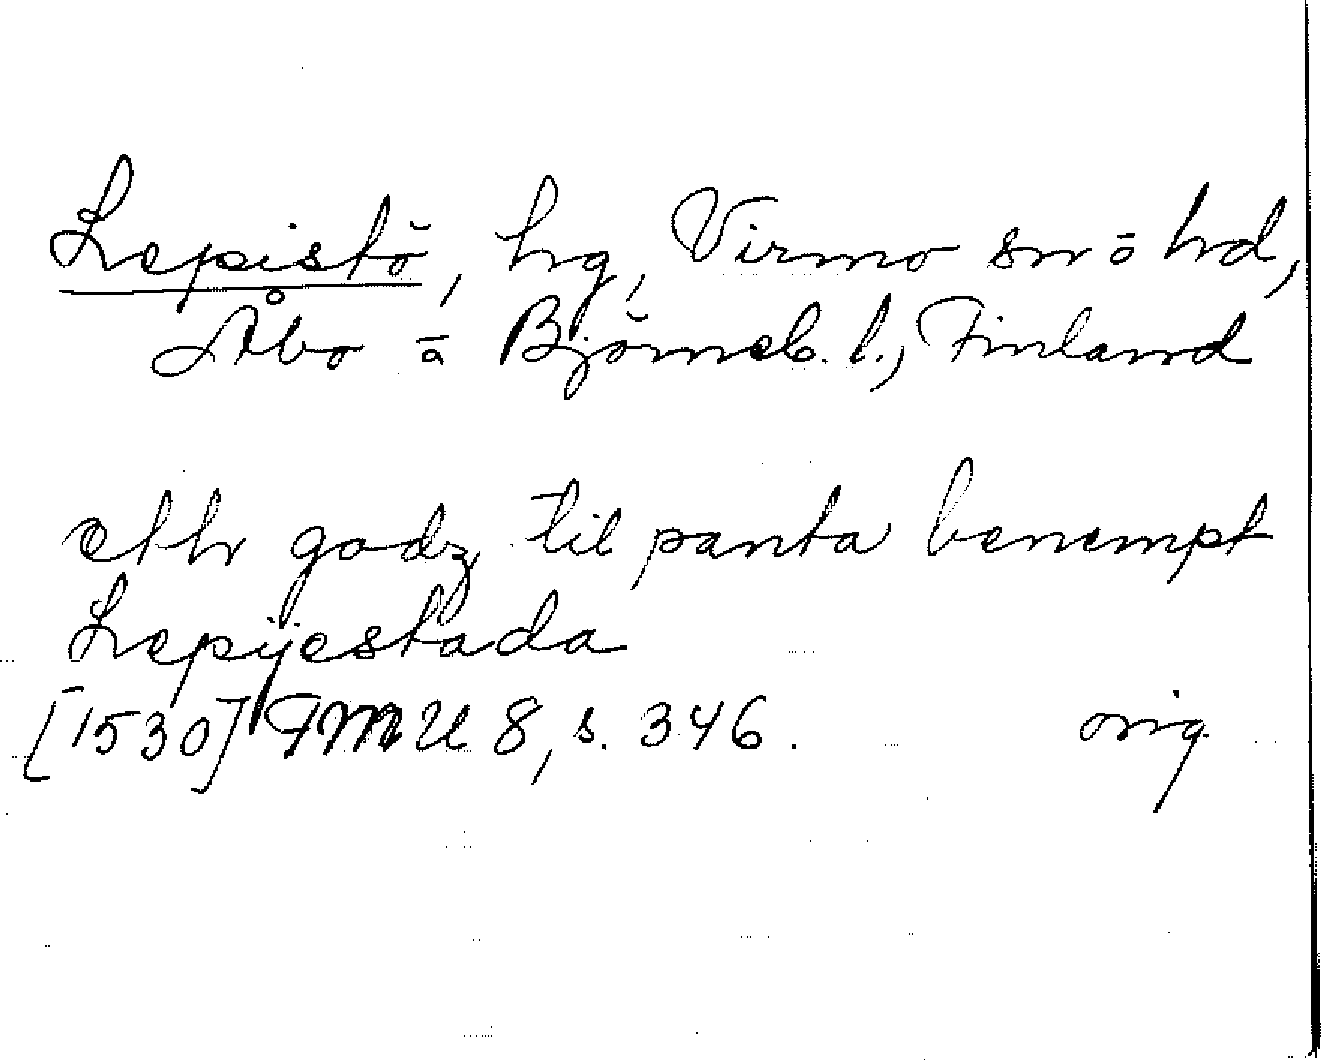 Lepistö, hg, Virmo sn o hd,
Åbo o Björneb. l., Finland
etth godz til panta benempt
Lepijestada
[1530] FMU 8, s. 346. orig